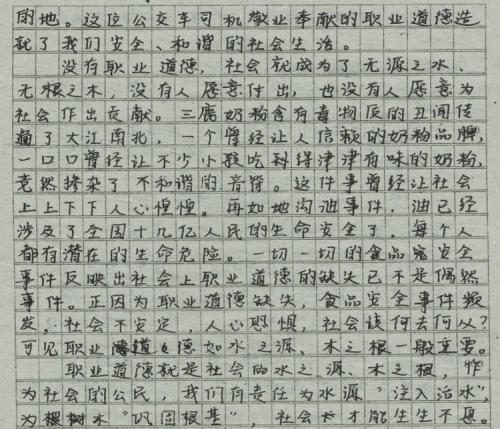 的地。这位公交车司机敬业奉献的职业道德造
就了我们安全、和谐的社会生活。
没有职业道德，社会就成为了无源之水、
无根之木，没有人愿意付出，也没有人愿意为
社会作出贡献。三鹿奶粉含有毒物质的丑闻传
遍了大江南北，一个曾经让人信赖的奶粉品牌，
一口口曾经让不少小孩吃到得津津有味的奶粉，
竟然掺杂了不和谐的音符。这件事曾经让社会
上上下下人心惶惶。再如地沟油事件，油已经
涉及了全国十几亿人民的生命安全了，每个人
都有潜在的生命危险。一切一切的食品安全
事件反映出社会上职业道德的缺失已不是偶然
事件。正因为职业道德缺失，食品安全事件频
发，社会不安定，人心恐惧，社会该何去何从？
可见职业道德如水之源、木之根一般重要。
职业道德就是社会的水之源、木之根，作
为社会的公民，我们有责任为水源“注入活水”，
为树木“巩固根基”，社会才能生生不息。